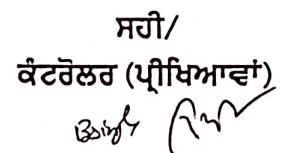 ਸਹੀ/
ਕੰਟਰੋਲਰ (ਪ੍ਰੀਖਿਆਵਾਂ)